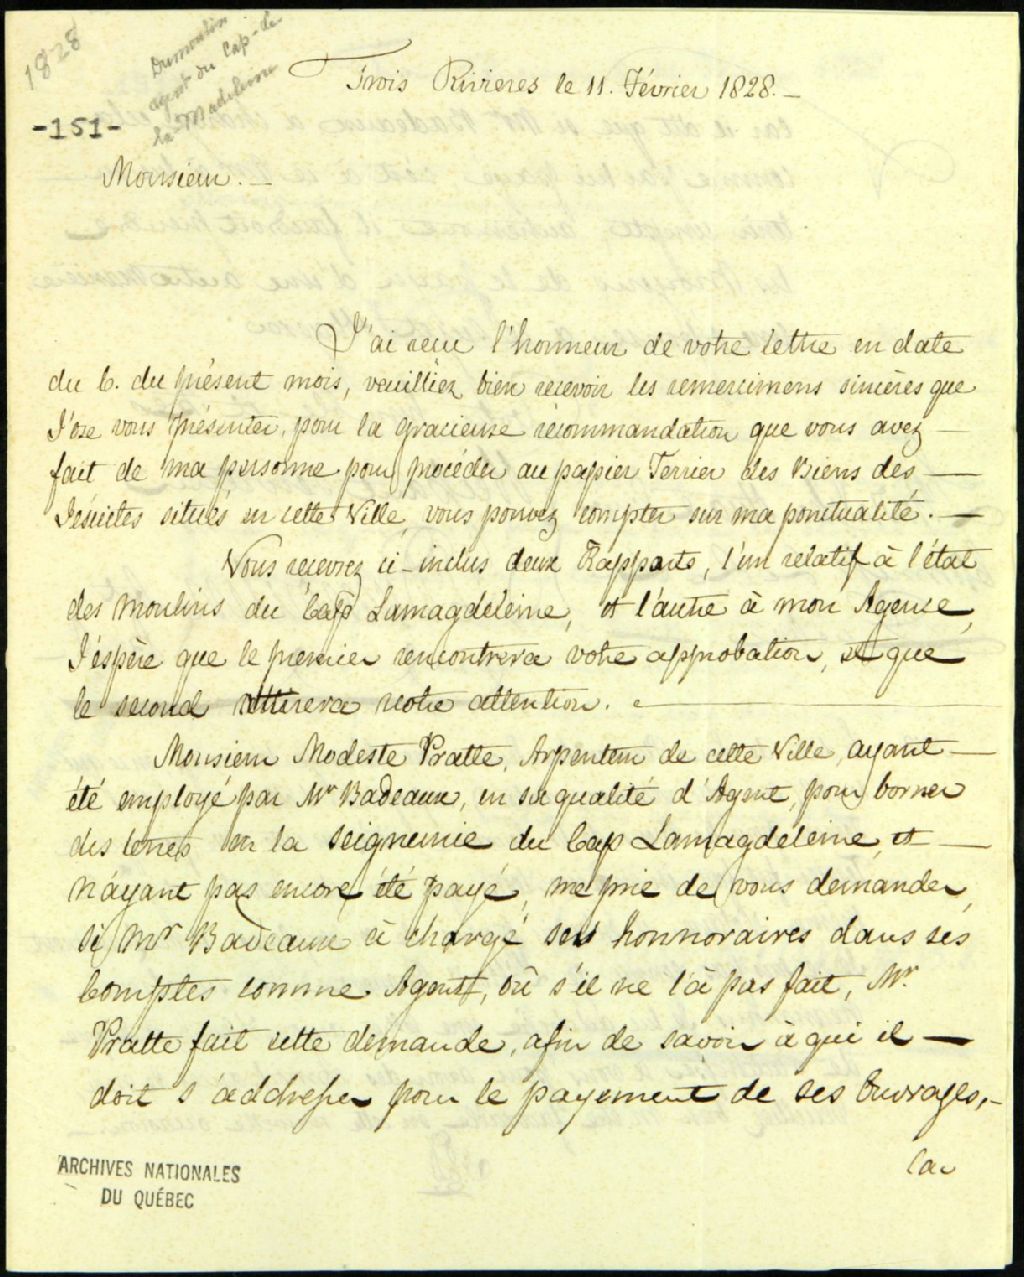 1828
Dumoulin
agent du Cap-de
la-Madeleine
-151-
Trois Rivieres le 11. Février 1828.-
Monsieur.-
J'ai reçu l'honneur de votre lettre en date
du 6. du présent mois, veuilliez bien recevoir les remercimens sincères que
J'ose vous présenter, pour la gracieuse récommandation que vous avez
fait de ma personne pour procéder au papier Terrier des Biens des
Jésuites situés en cette Ville, vous pouvez compter sur ma ponctualité.-
Vous recevrez ci-inclus deux Rapports, l'un relatif à l'état
des Moulins du Cap Lamagdeleine, et l'autre à mon Agence,
J'éspère que le premier rencontrera votre approbation, et que
le second attirera votre attention.
Monsieur Modeste Pratte, Arpenteur de cette Ville, ayant
été employé par Mr Badeaux, en sa qualité d'Agent, pour borner
des terres en la Seigneurie du Cap Lamagdeleine, et
n'ayant pas encore été payé, me prie de vous demander,
si Mr Badeaux à chargé ses honnoraires dans ses
Comptes comme Agent, où s'il ne l'à pas fait, Mr.
Pratte fait cette demande, afin de savoir à qui il
doit s'addresser pour le payement de ses Ouvrages,-
Car
ARCHIVES NATIONALES
DU QUÉBEC